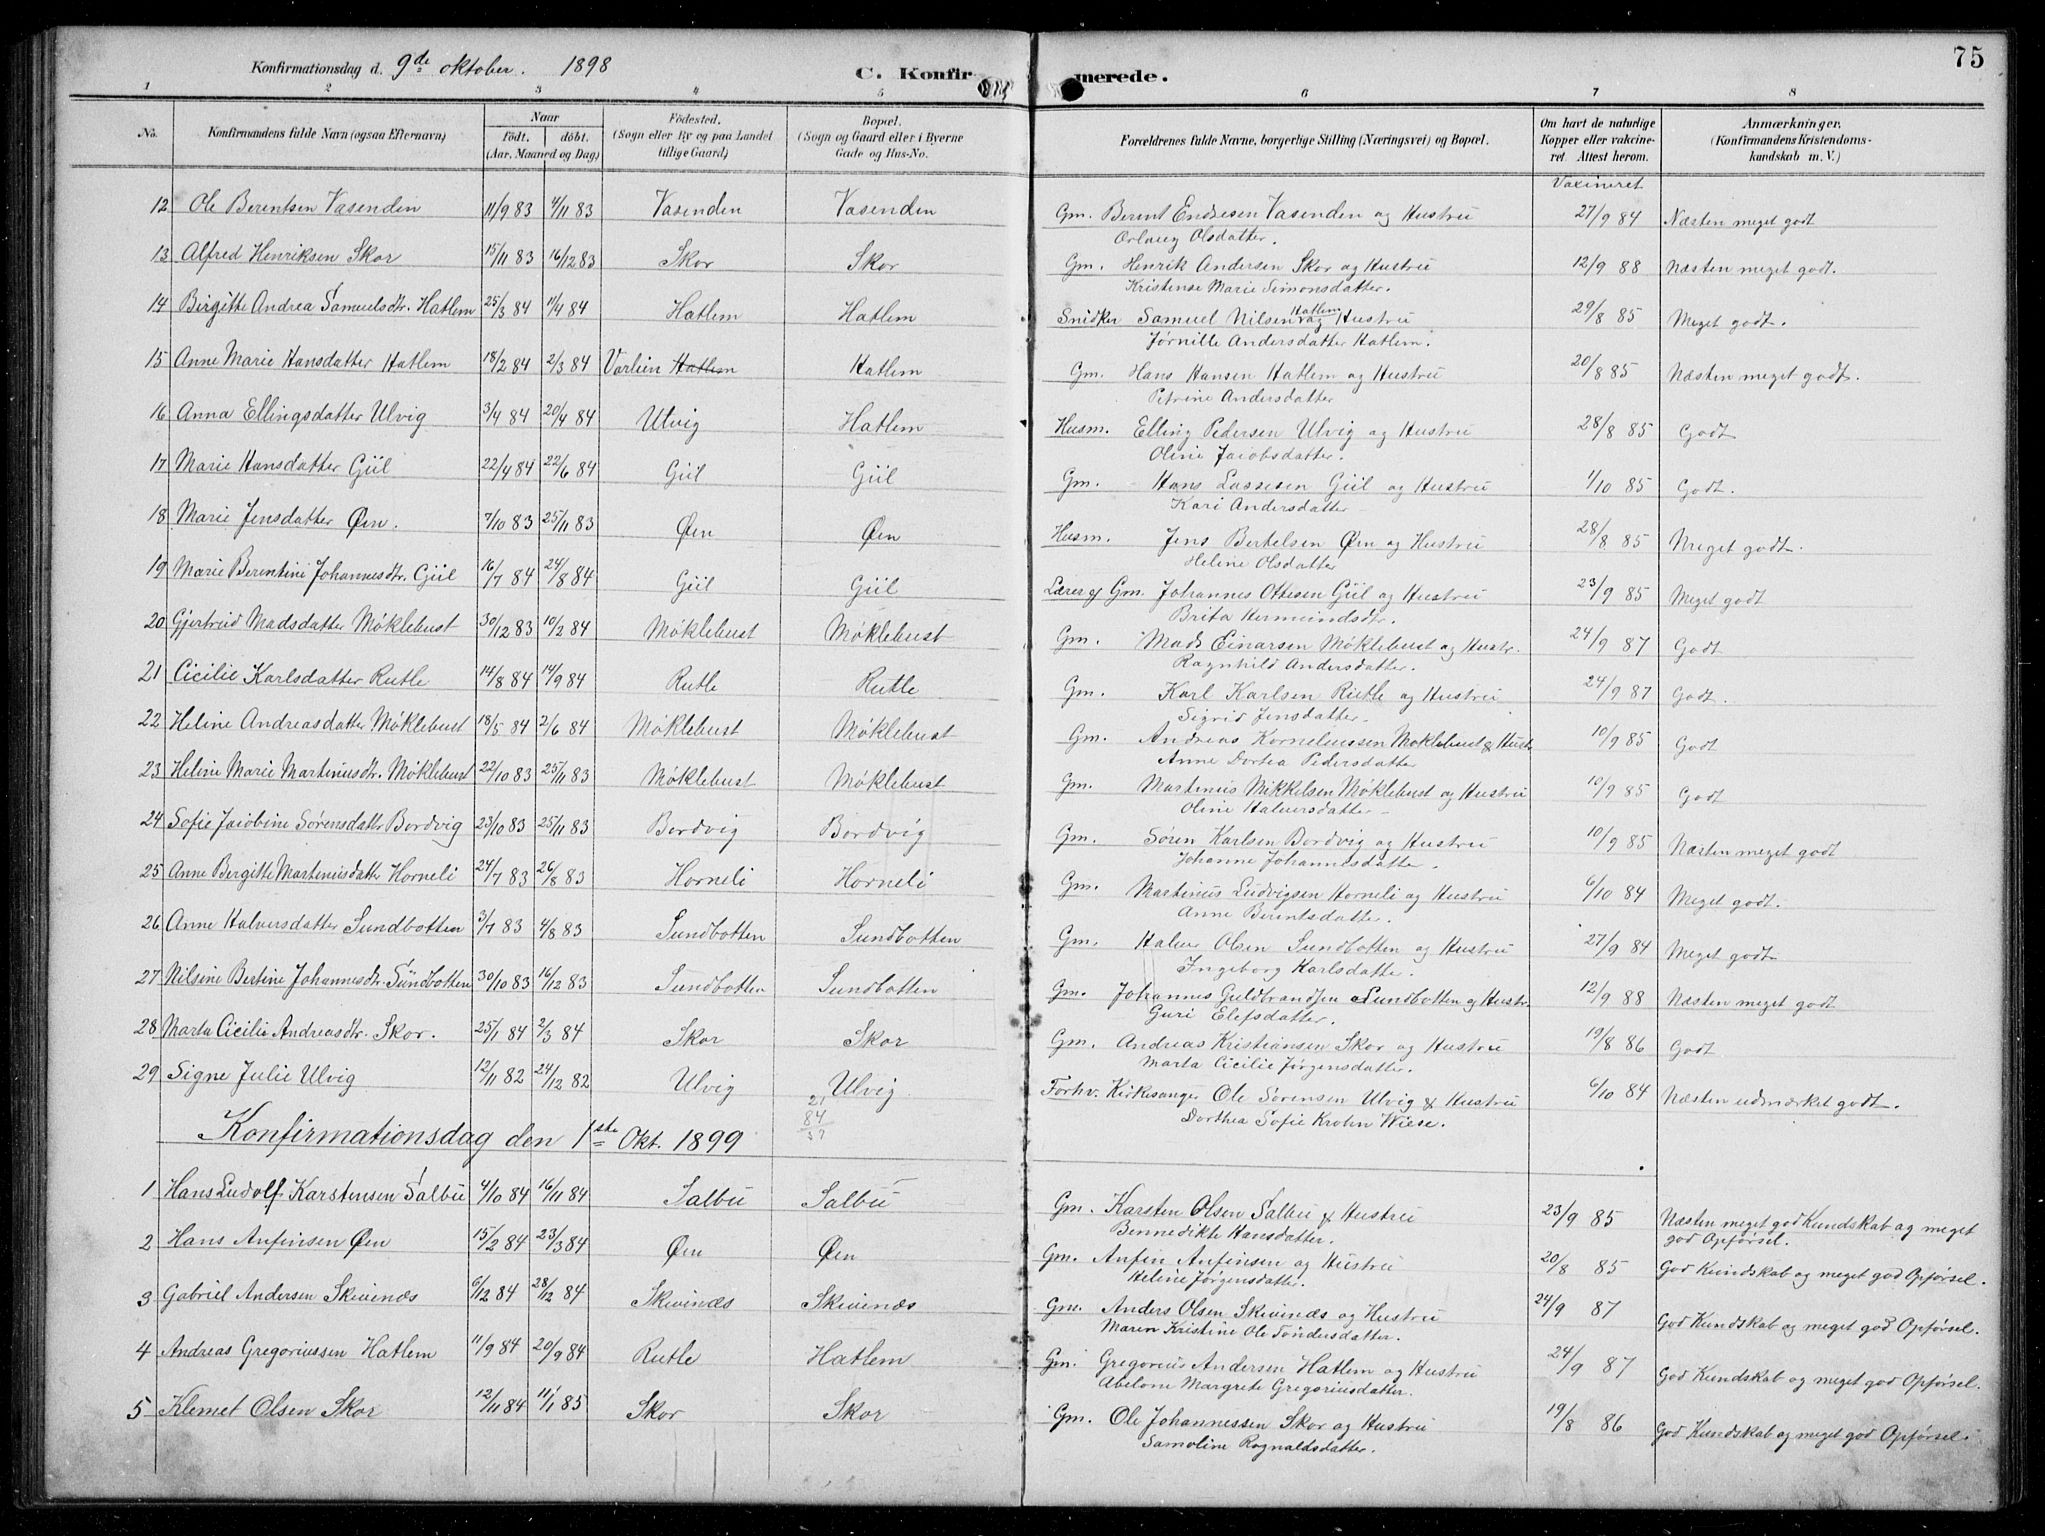 75
Konfirmationsdag d. 9de oktober. 1898
C. Konfirmerede.
1 2 3 4 5 6 7 8
No. Konfirmandens fulde Navn (ogsaa Efternavn) Naar født. døbt. (Aar, Maaned og Dag) Fødested. (Sogn eller By og paa Landet tillige Gaard) Bopæl. (Sogn og Gaard eller i Byerne Gade og Hus-No. Forældrenes fulde Navne, borgerlige Stilling (Næringsvei) og Bopæl. Om havt de naturlige Kopper eller vakcineret. Attest herom. Anmærkninger. (Konfirmandens Kristendomskundskab m. V.)
Vaxineret
12 Ole Berentsen Vasenden 11/9 83 4/11 83 Vasenden Vasenden Gm. Berent Endresen Vasenden og Hustru 27/9 84 Næsten meget godt
Orlaug Olsdatter.
13 Alfred Henriksen Skor 15/11 83 16/12 83 Skor Skor Gm. Henrik Andersen Skor og Hustru 12/9 88 Næsten meget godt.
Kristense Marie Simonsdatter.
14 Birgitte Andrea Samuelsdtr. Hatlem 25/3 84 11/4 84 Hatlem Hatlem Snidker Samuel Nilsen Hatlem og Hustru 29/8 85 Meget godt.
Jørnille Andersdatter Hatlem.
15 Anne Marie Hansdatter Hatlem 18/2 84 2/3 84 Varlien Hatlem Hatlem Gm. Hans Hansen Hatlem og Hustru 20/8 85 Næsten meget godt.
Petrine Andersdatter
16 Anna Ellingsdatter Ulvig 3/4 84 20/4 84 Ulvig Hatlem Husm. Elling Pedersen Ulvig og Hustru 28/8 85 Godt
Oline Jacobsdatter.
17 Marie Hansdatter Giil 22/4 84 22/6 84 Giil Giil Gm. Hans Lassesen Giil og Hustru 1/10 85 Godt.
Kari Andersdatter
18 Marie Jensdatter Øen. 7/10 83 25/11 83 Øen Øen Husm. Jens Bertelsen Øen og Hustru 28/8 85 Meget godt.
Heline Olsdatter
19 Marie Berentine Johannesdtr. Giil 16/7 84 24/8 84 Giil Giil Lærer og Gm. Johannes Ottesen Giil og Hustru 23/9 85 Meget godt
Brita Hermundsdtr.
20 Gjertrud Madsdatter Møklebust 30/12 83 10/2 84 Møklebust Møklebust Gm. Mads Einarsen Møklebust og Hustr. 24/9 87 Godt
Ragnhild Andersdatter.
21 Cicilie Karlsdatter Rutle 14/8 84 14/9 84 Rutle Rutle Gm. Karl Karlsen Rutle og Hustru 24/9 87 Godt.
Sigrid Jensdatter
22 Heline Andreasdatter Møklebust 18/5 84 2/6 84 Møklebust Møklebust Gm. Andreas Korneliussen Møklebust & Hustr. 10/9 85 Godt
Anne Dortea Pedersdatter
23 Heline Marie Martinusdtr. Møklebust 22/10 83 25/11 83 Møklebust Møklebust Gm. Martinus Mikkelsen Møklebust og Hustru 10/9 85 Godt
Oline Halversdatter
24 Sofie Jacobine Sørensdattr Bordvig 23/10 83 25/11 83 Bordvig Bordvig Gm. Søren Karlsen Bordvig og Hustru 10/9 85 Næsten meget godt
Johanne Johannesdatter.
25 Anne Bergitte Martinusdatter Horneli 24/7 83 26/8 83 Horneli Horneli Gm. Martinus Ludvigsen Horneli og Hustru 6/10 84 Meget godt.
Anne Berentsdatter.
26 Anne Halversdatter Sundbotten 3/7 83 4/8 83 Sundbotten Sundbotten Gm. Halver Olsen Sundbotten og Hustru 27/9 84 Meget godt
Ingeborg Karlsdatter.
27 Nilsine Bertine Johannesdtr. Sundbotten 30/10 83 16/12 83 Sundbotten Sundbotten Gm. Johannes Guldbrandsen Sundbotten og Hustr. 12/9 88 Næsten meget godt
Guri Elefsdatter.
28 Marta Cicilie Andreasdtr. Skor. 25/1 84 2/3 84 Skor Skor Gm. Andreas Kristiansen Skor og Hustru 19/8 86 Godt
Marta Cicilie Jørgensdatter.
29 Signe Julie Ulvig 12/11 82 24/12 82 Ulvig Ulvig. Forhv. Kirkesanger Ole Sørensen Ulvig & Hustru 6/10 84 Næsten udmærket godt.
Dorthea Sofie Krohn Wiese.
21
84
Konfirmationsdag den 1ste Okt. 1899
1 Hans Ludolf Karstensen Salbu 4/10 84 16/11 84 Salbu Salbu Gm. Karsten Olsen Salbu & Hustru 23/9 85 Næsten meget god Kundskab og meget
Bennedikte Hansdatter. god Opførsel.
2 Hans Anfinsen Øen 15/2 84 23/3 84 Øen Øen Gm. Anfin Anfinsen og Hustru 20/8 85 God Kundskab og meget god Opførsel.
Heline Jørgensdatter.
3 Gabriel Andersen Skivenæs 6/12 84 28/12 84 Skivenæs Skivenæs Gm. Anders Olsen Skivenæs og Hustru 24/9 87 God Kundskab og meget god Opførsel.
Maren Kristine Ole Tøndersdatter.
4 Andreas Gregoriussen Hatlem 11/9 84 20/9 84 Rutle Hatlem Gm. Gregorius Andersen Hatlem og Hustru 24/9 87 God Kundskab og meget god Opførsel.
Abelone Margrete Gregoriusdatter.
5 Klemet Olsen Skor 12/11 84 11/1 85 Skor Skor Gm. Ole Johannessen Skor og Hustru 19/8 86 God Kundskab og meget god Opførsel.
Samoline Rognaldsdatter.